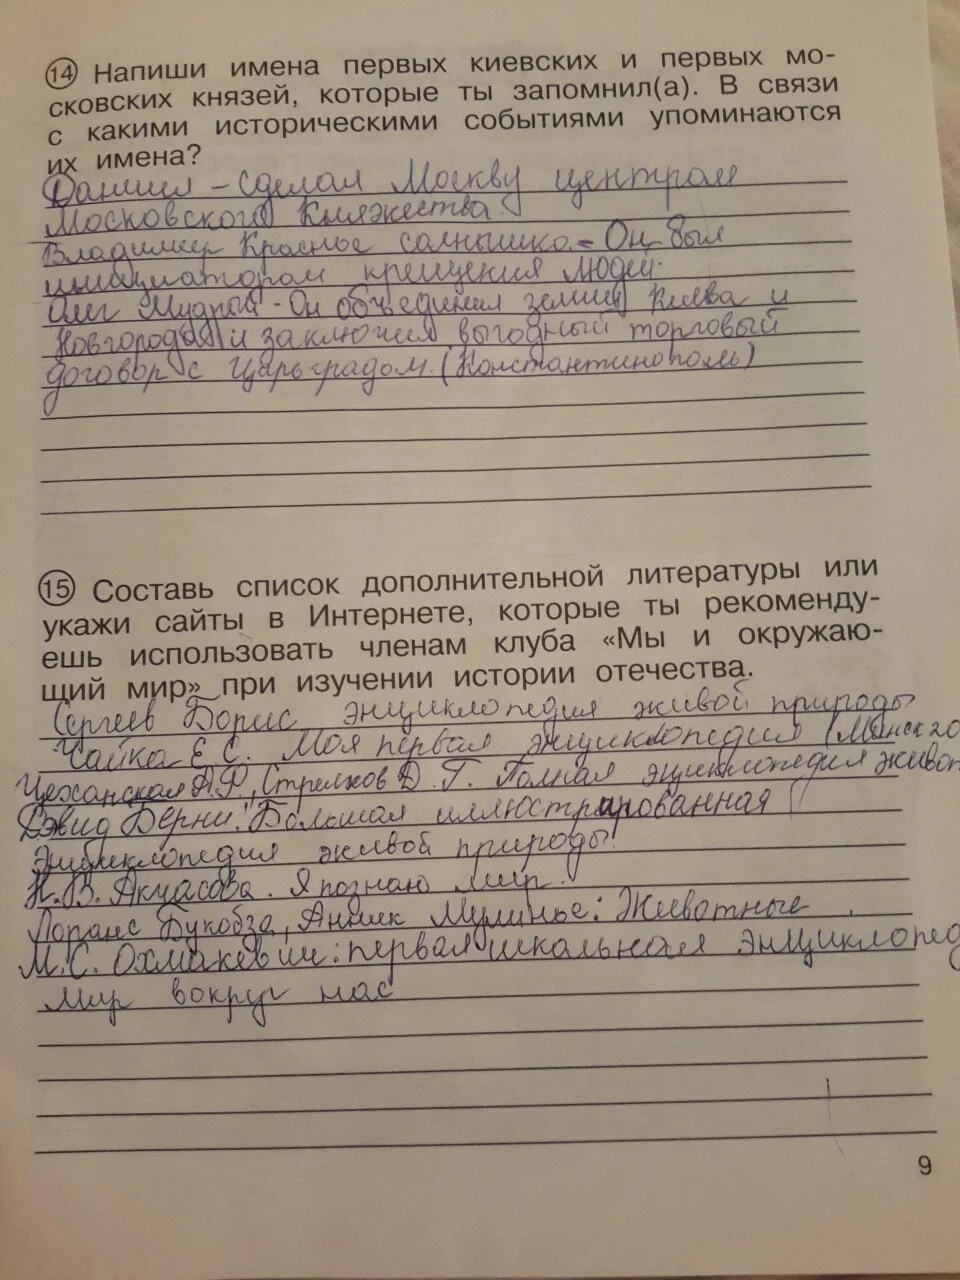 14 Напиши имена первых киевских и первых мо-
сковских князей, которые ты запомнил(а). В связи
с какими историческими событиями упоминаются
их имена?
Даниил - сделал Москву центром
Московского Княжества.
Владимир Красное солнышко - Он был
инициатором крещения людей.
Олег Мудрый - Он объединил земли Киева и
Новгорода и заключил выгодный торговый
договор с Царьградом. (Константинополь)
15 Составь список дополнительной литературы или
укажи сайты в Интернете, которые ты рекоменду-
ешь использовать членам клуба «Мы и окружаю-
щий мир» при изучении истории отечества.
Сергеев Борис энциклопедия живой природы
Чайка Е. С. Моя первая энциклопедия (Минск 20
Цеханская А.Ф., Стрелков Д. Г. Полная энциклопедия живот
Дэвид Берни. Большая иллюстрированная
Энциклопедия живой природы.
Н. В. Акмасова. Я познаю мир.
Лоранс Букобза, Анник Мулинье: Животные
М. С. Охмакевич: первая школьная энциклопед
мир вокруг нас
9